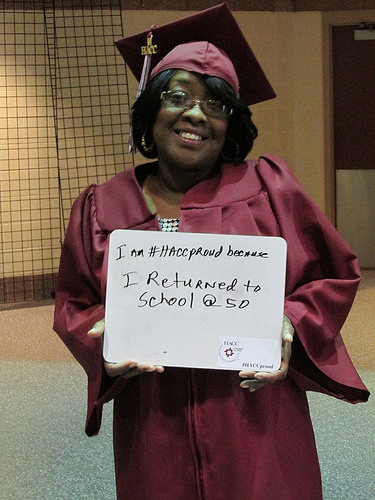 HACC
I am #HACCproud because
I Returned to
School @ 50
HACC
#HACCproud